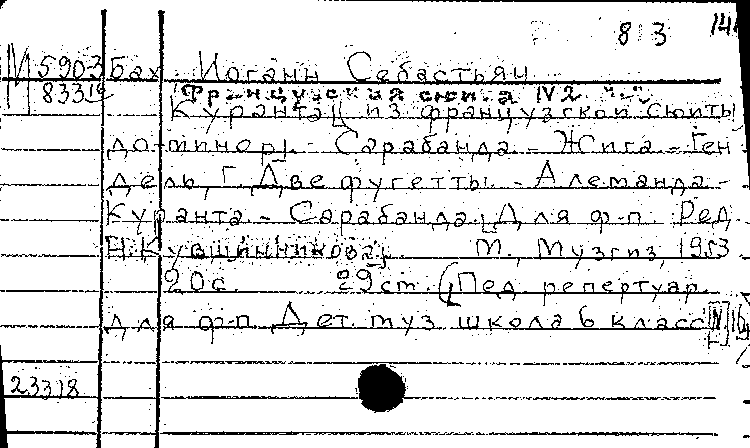 813 14
М 5903 Бах Иоганн Себастьян
83319 Французская сюита N2
Куранта [из французской сюиты
до-минор]. - Сарабанда. - Жига. - Ген
дель, Г. Две фугетты. - Алеманда. -
Куранта. - Сарабанда. [Для ф-п. Ред.
Н. Кувшинникова].  М., Музгиз, 1953
20 с. 29 см. (Пед. репертуар.
Для ф-п. Дет. муз. школа 6 класс
23318